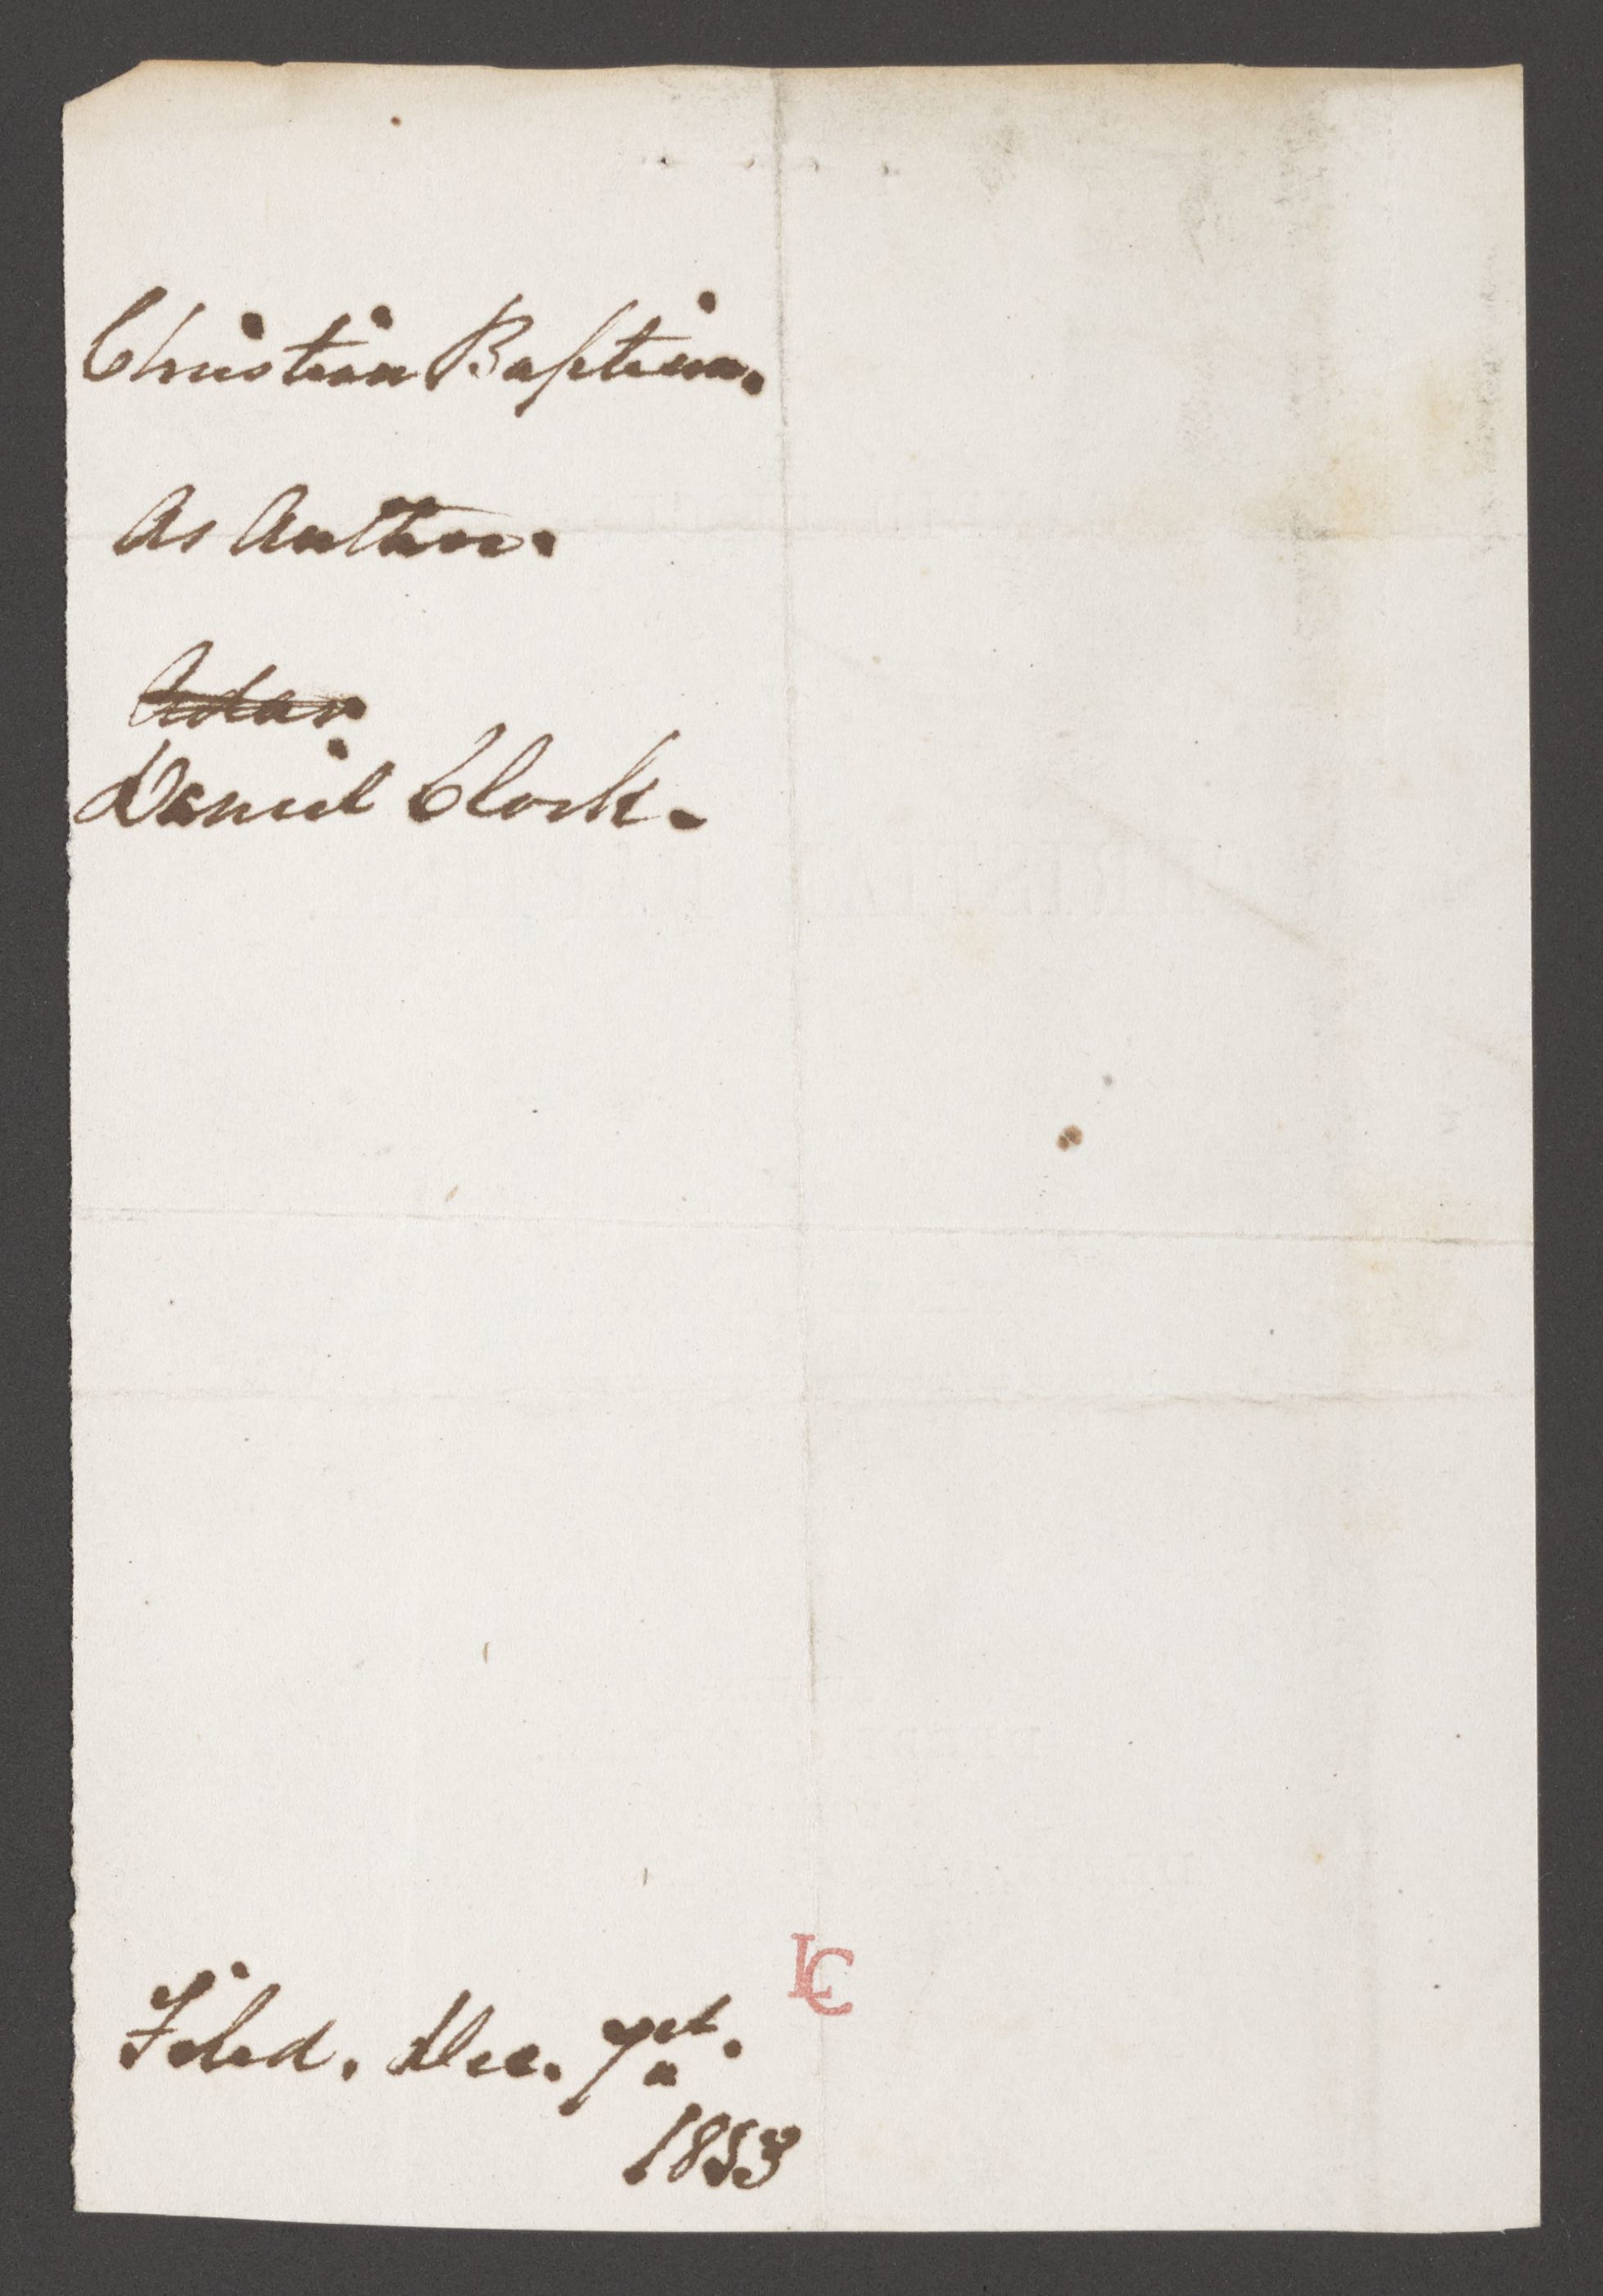 Christian Baptism.
As Author.
Daniel Clark.
LC
Filed. Dec. 7th.
1853